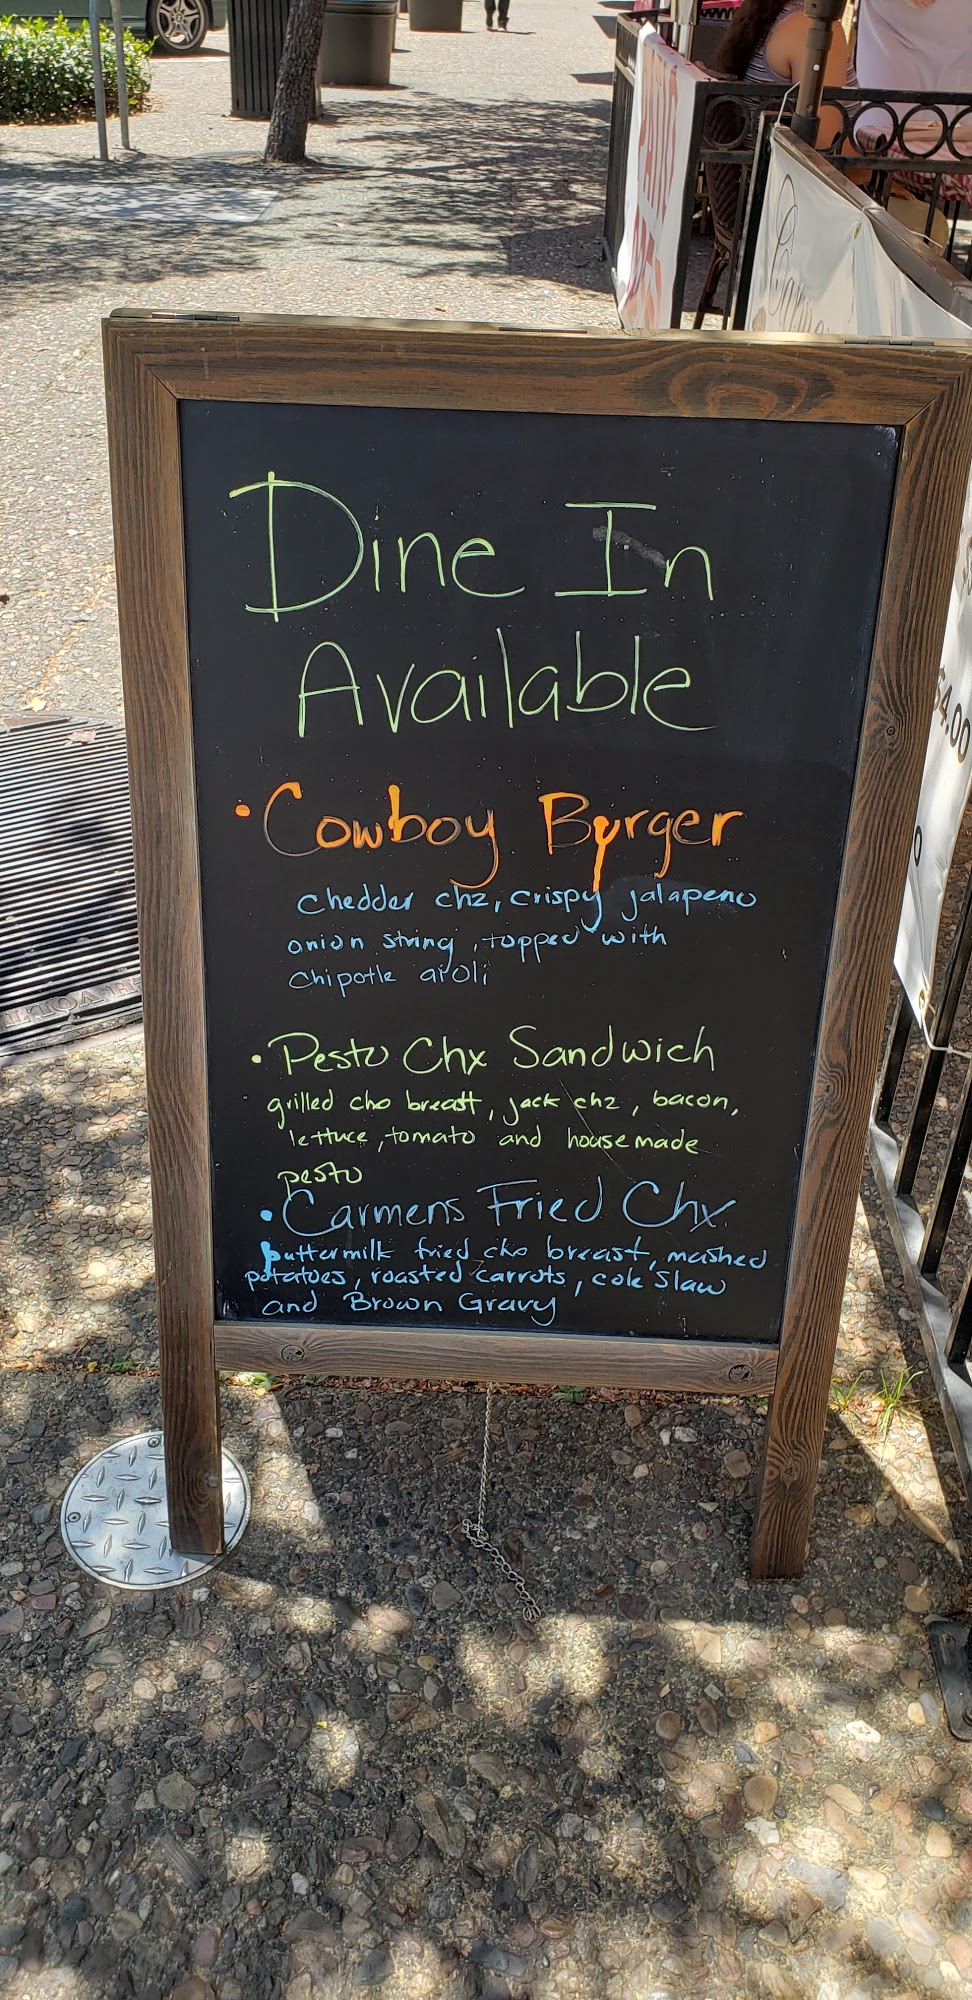 PATIO
Dine In
Available
• Cowboy Burger
chedder chz, crispy jalapeno
onion string, topped with
Chipotle aioli
• Pesto Chx Sandwich
grilled chx breast, jack chz, bacon,
lettuce, tomato and housemade
pesto
• Carmens Fried Chx
buttermilk fried chx breast, mashed
potatoes, roasted carrots, cole slaw
and Brown Gravy
$4.00